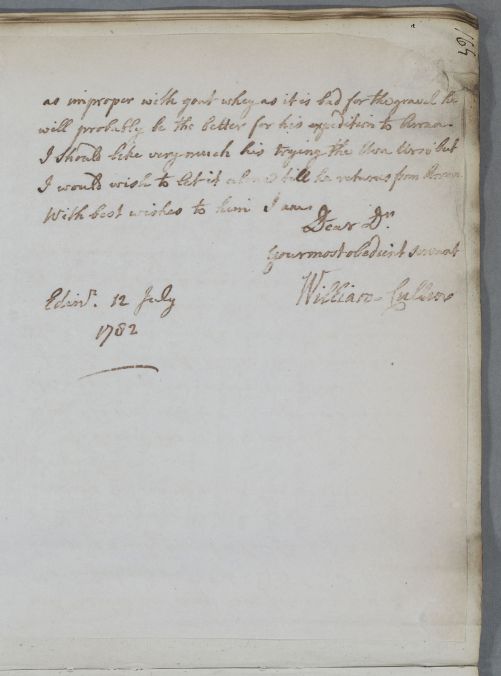 164
as improper with goat whey as it is bad for the gravel he
will probably be the better for his expedition to Arran.
I should like very much his trying the Uva Ursi but
I would wish to let it alone till he returns from Arran
With best wishes to him I am
Dear Dr
your most obedient servant
William Cullen
Edinr. 12 July
1782